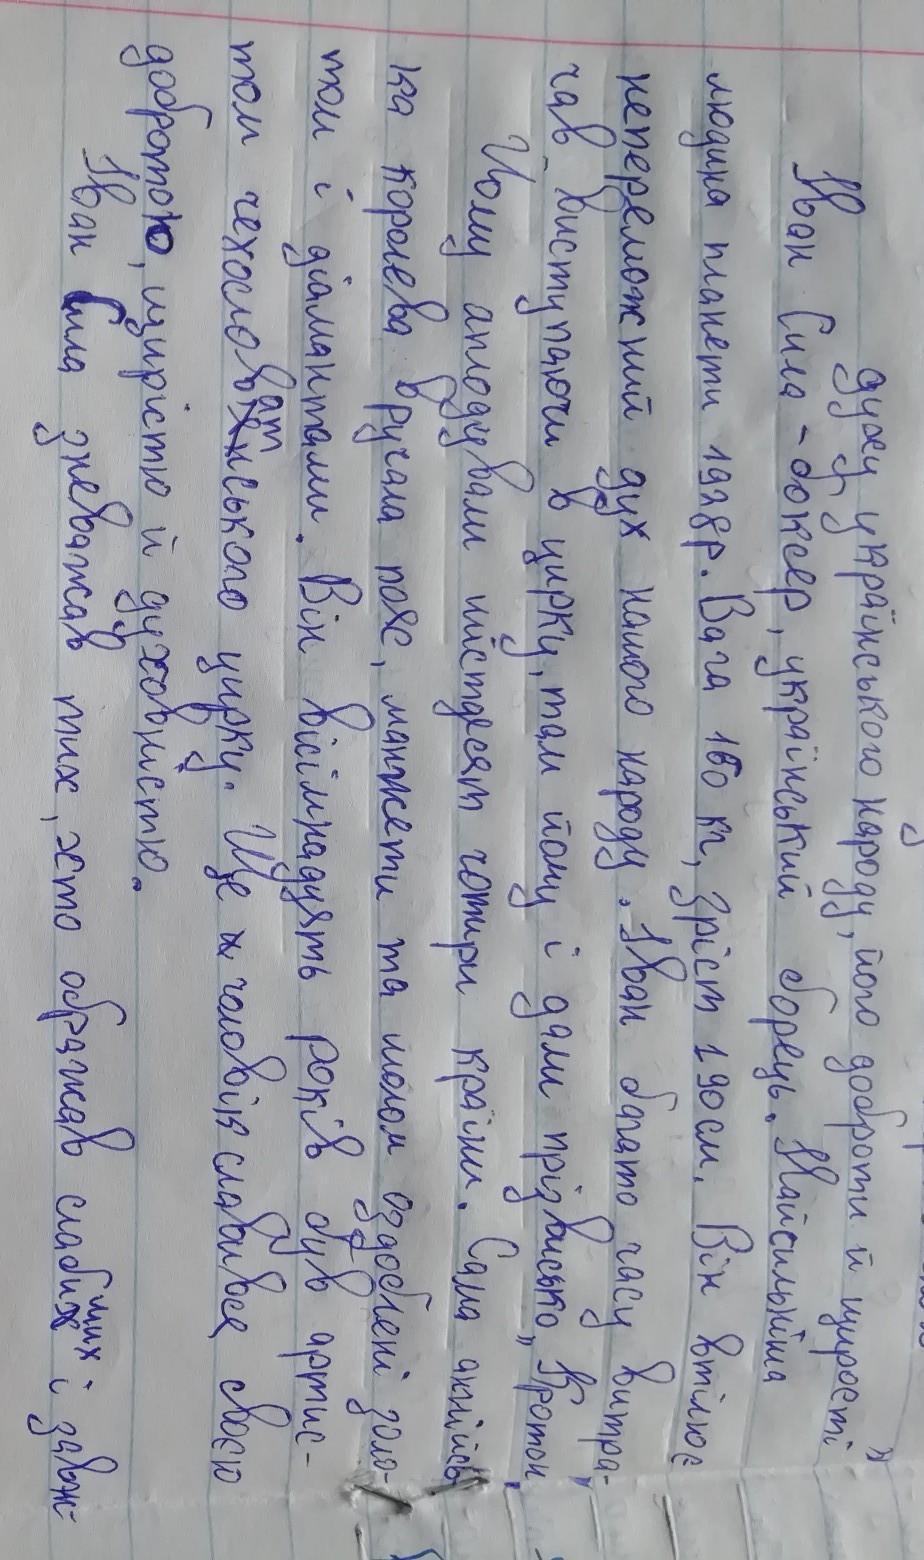 духу українського народу, його доброти й щирості"
Іван Сила - боксер, український борець. Найсильніша
людина планети 1928р. Вага 160 кг, зріст 190см. Він втілює
непереможний дух нашого народу. Іван багато часу витра-
чав виступаючи в цирку, там йому і дали прізвисько „Кротон"
Йому аплодували шістдесят чотири країни. Сама англійсь
ка королева вручала пояс, манжети та шолом оздоблені золо-
том і діамантами. Він вісімнадцять років був артис-
том чехословатського цирку. Ще ж чоловік славився своєю
добротою, щирістю й духовністю.
Іван Сила зневажав тих, хто ображав слабіших і завж-